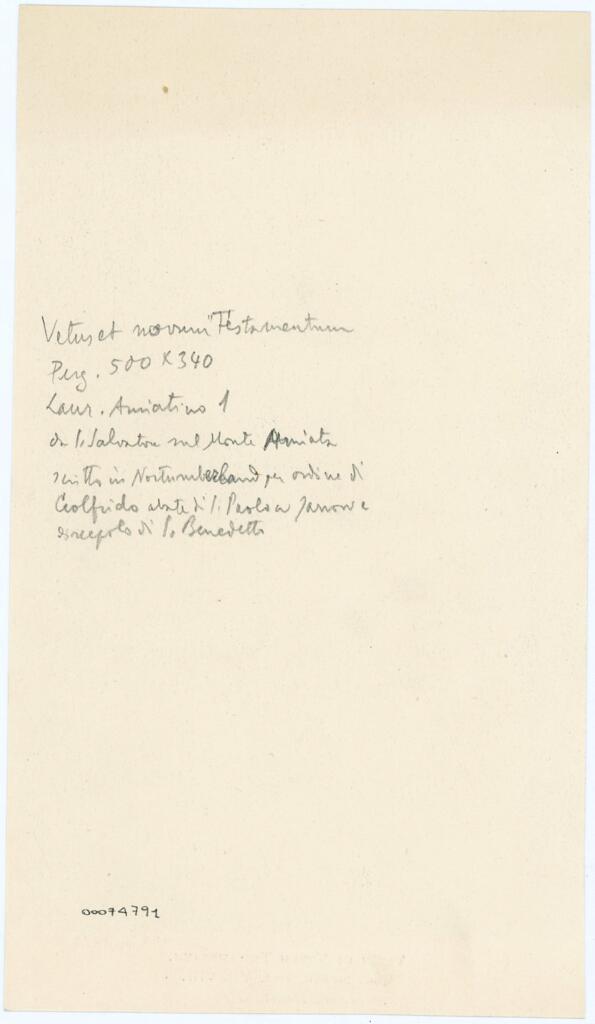 Vetus et novum Testamentum
Perg. 500 x 340
Laur. Amiatino 1
da S. Salvatore sul Monte Amiata
scritto in Nortumberland per ordine di
Ceolfrido abate di S. Paolo a Jarrow e
discepolo di S. Benedetto
00074791